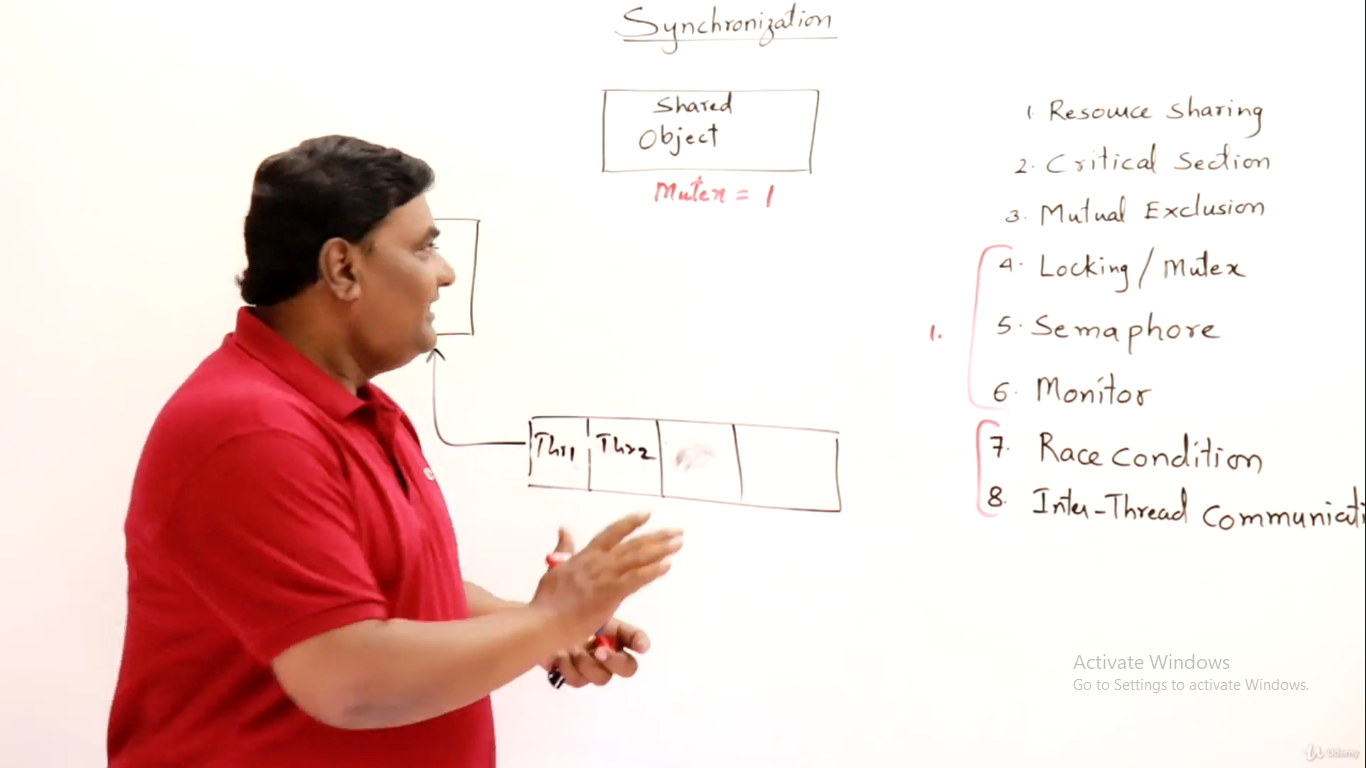 Synchronization
Shared
Object
Mutex = 1
Thr1 Thr2
1. Resource Sharing
2. Critical Section
3. Mutual Exclusion
4. Locking / Mutex
5. Semaphore
6. Monitor
1.
7. Race condition
8. Inter-Thread Communicati
Activate Windows
Go to Settings to activate Windows.
Udemy